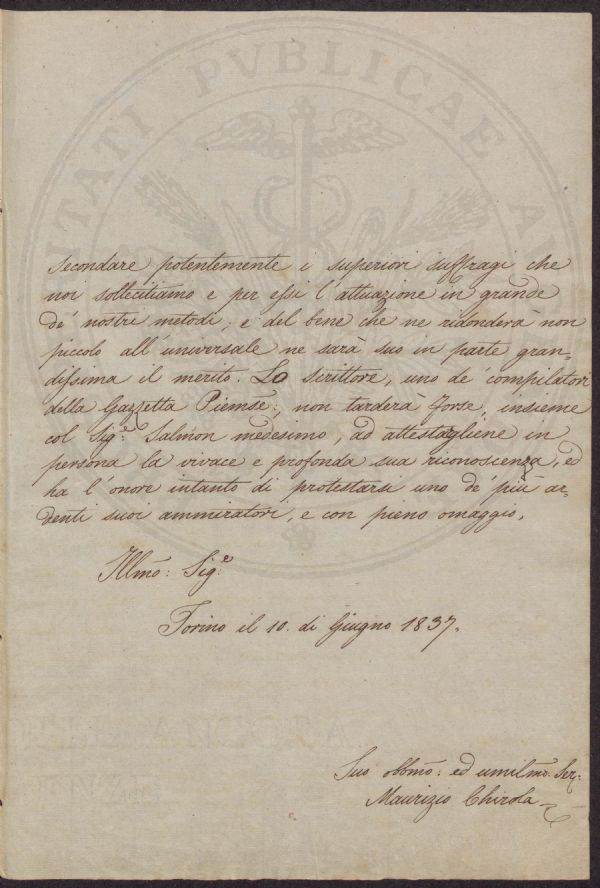 NTATI PVBLICAE A
secondare potentemente i superiori suffragj che
noi sollecitiamo e per essi l'attuazione in grande
de' nostri metodi; e del bene che ne ridonderà non
piccolo all'universale ne sarà suo in parte gran-
dissima il merito. Lo scrittore, uno de' compilatori
della Gazzetta Piemse:, non tarderà forse, insieme
col Sig.r Salmon medesimo, ad attestargliene in
persona la vivace e profonda sua riconoscenza, ed
ha l'onore intanto di protestarsi uno de' più ar-
denti suoi ammiratori, e con pieno omaggio,
Illmo: Sig.e
Torino il 10. di Giugno 1837.
Suo obbmo: ed umilmo. Ser:
Maurizio Chirola